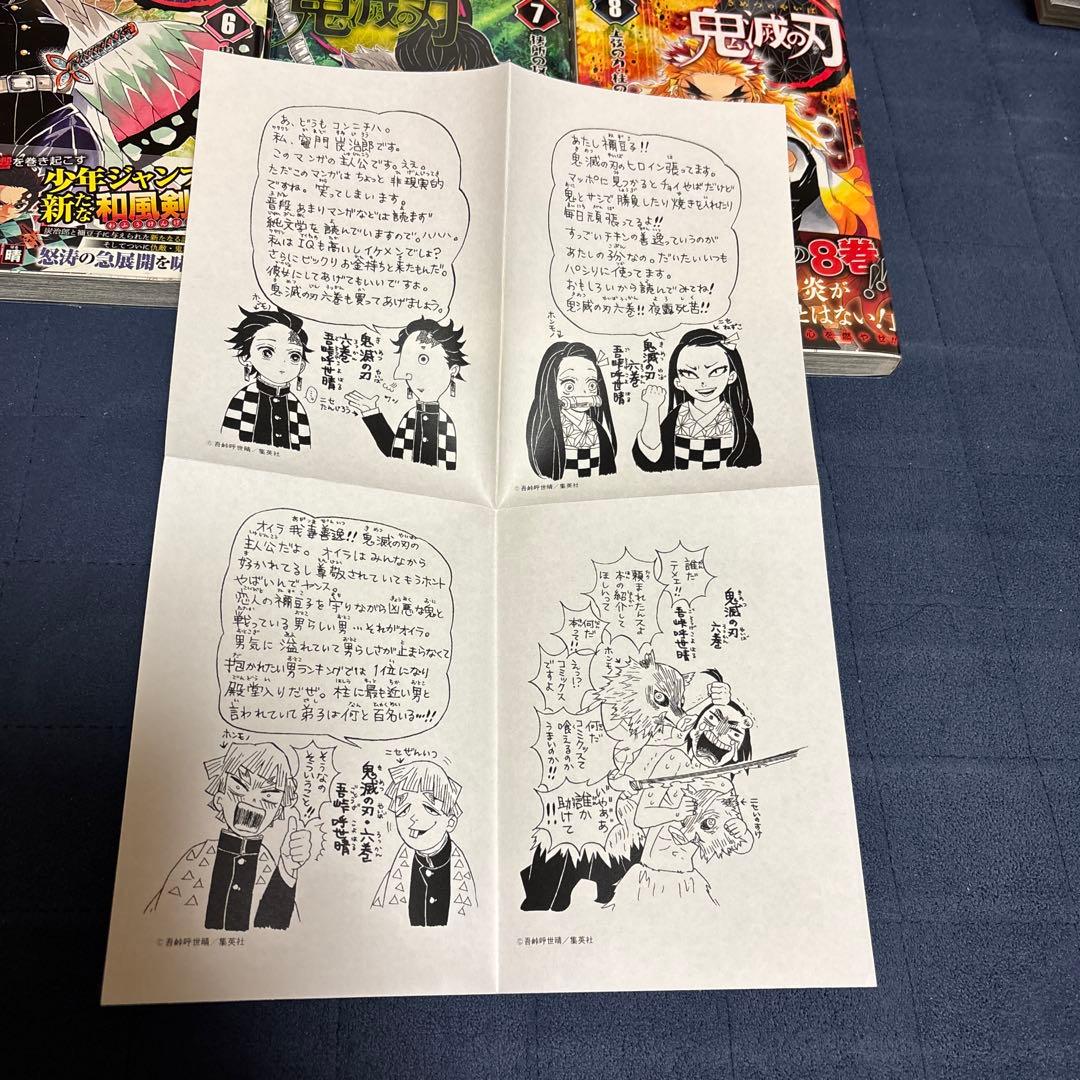 6
鬼滅の刃
7
8
鬼滅の刃
を巻き起こす
少年ジャンプ
新たな和風剣
炭治郎と禰豆子に与えられた新たなる
そしてついに仇敵・鬼
怒涛の急展開を味
晴
の8巻!!
炎が
とはない!」
心を燃やせ
あ、どうもコンニチハ。
私、竈門炭治郎です。
このマンガの主人公です。ええ。
ただこのマンガはちょっと非現実的
ですね。笑ってしまいます。
普段あまりマンガなどは読まず
純文学を読んでいますので。ハハハ。
私はIQも高いしイケメンでしょ?
さらにビックリお金持ちと来たもんだ。
彼女にしてあげてもいいですよ。
鬼滅の刃六巻も買ってあげましょう。
ホンモノ
鬼滅の刃
六巻
吾峠呼世晴
ニセ
たんじろう
©吾峠呼世晴/集英社
あたし禰豆る!!
鬼滅の刃のヒロイン張ってます。
マッポに見つかるとチョイやばだけど
鬼とサシで勝負したり焼きを入れたり
毎日頑張ってるよ!!
すっごいチキンの善逸っていうのが
あたしの子分なの。だいたいいつも
パシリに使ってます。
おもしろいから読んでみてね!
鬼滅の刃六巻!!夜露死苦!!
ホンモノ
鬼滅の刃
六巻
吾峠呼世晴
ニセ
ねずこ
©吾峠呼世晴/集英社
オイラ我妻善逸!!鬼滅の刃の
主人公だよ。オイラはみんなから
好かれてるし尊敬されていてもうホント
やばいんでヤンス。
恋人の禰豆子を守りながら凶悪な鬼と
戦っている男らしい男…それがオイラ。
男気に溢れていて男らしさが止まらなくて
抱かれたい男ランキングでは1位になり
殿堂入りだぜ。柱に最も近い男と
言われていて弟子は何と百名いる…!!
ホンモノ
そうなの
そういうこと!!
鬼滅の刃・六巻
吾峠呼世晴
ニセぜんいつ
©吾峠呼世晴/集英社
誰だ
テメェ!!
鬼滅の刃
六巻
吾峠呼世晴
頼まれたんスよ
本の紹介して
ほしいって
何だ
本って!!
ホンモノ
えっ!?
コミックス
ですよ
何だ
コミックスて
喰えるのか
うまいのか!!
いやああ
誰か
助けて
!!
ニセいのすけ
©吾峠呼世晴/集英社